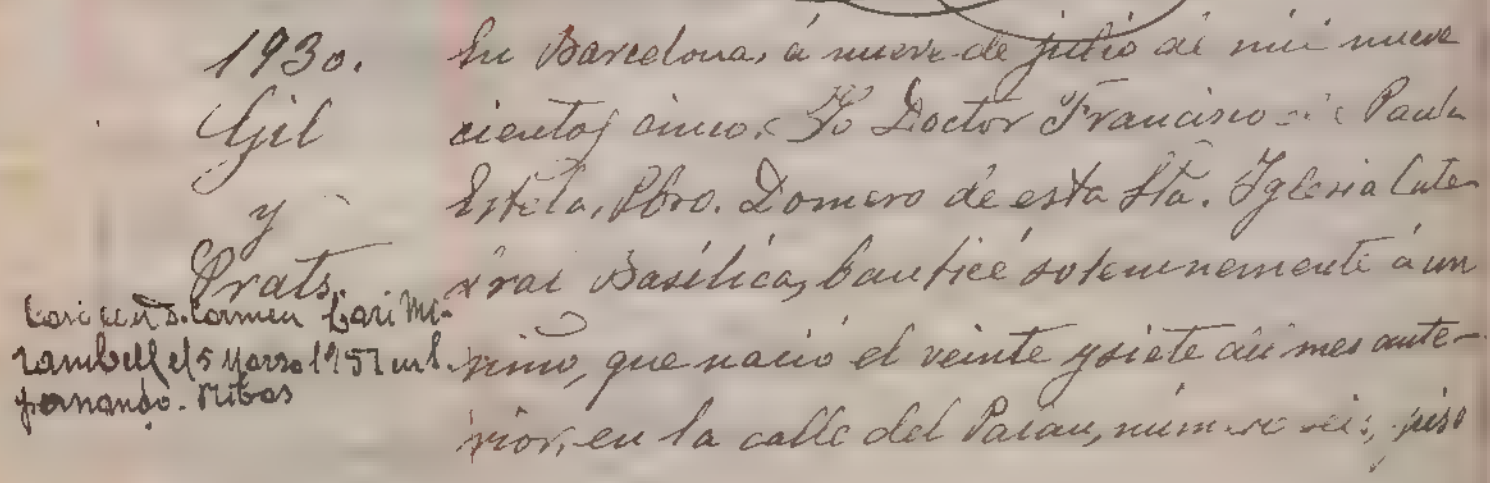 1930.
Gil
y
Prats.
Casó con D. Carmen
el 5 Marzo 1957 en S.
Fernando. Ribas
En Barcelona, á nueve de julio de mil nueve
cientos cinco. Yo Doctor Francisco de Paula
Estela, Pbro. Domero de esta Sta. Iglesia Cate-
dral Basílica, bauticé solemnemente á un
niño, que nació el veinte y siete del mes ante-
rior, en la calle del Palau, número seis, piso